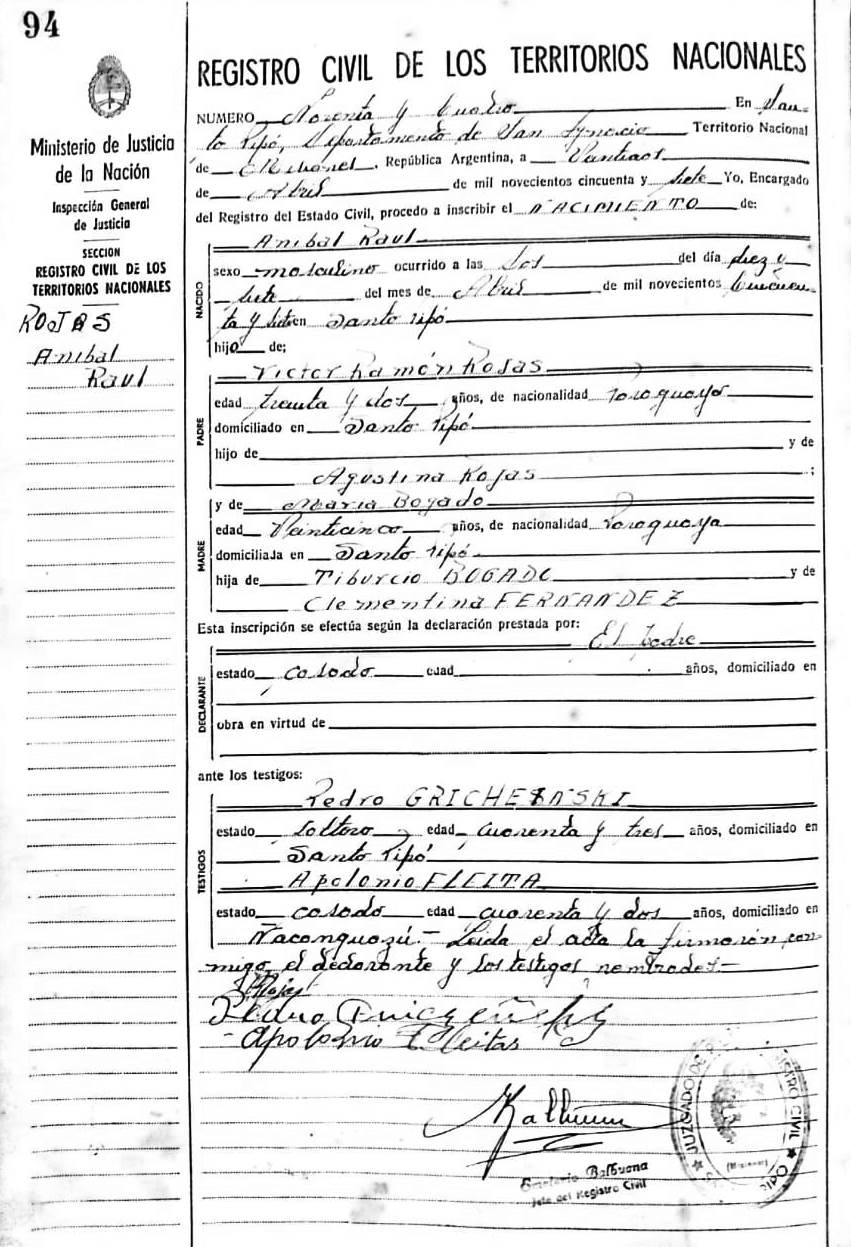 94
Ministerio de Justicia
de la Nación
Inspección General
de Justicia
SECCION
REGISTRO CIVIL DE LOS
TERRITORIOS NACIONALES
ROJAS
Anibal
Raul
REGISTRO CIVIL DE LOS TERRITORIOS NACIONALES
NUMERO Noventa y Cuatro En San-
to Pipó, Departamento de San Ignacio Territorio Nacional
de Misiones, República Argentina, a
de Abril de mil novecientos cincuenta y siete Yo, Encargado
del Registro del Estado Civil, procedo a inscribir el NACIMIENTO de:
NACIDO
Anibal Raul
sexo masculino ocurrido a las dos del día diez y
siete del mes de Abril de mil novecientos cincuen-
ta y siete en Santo Pipó
hijo de;
PADRE
Victor Ramón Rojas
edad treinta y dos años, de nacionalidad Paraguaya
domiciliado en Santo Pipó
hijo de y de
Agustina Rojas ;
MADRE
y de Maria Bogado
edad Veinticinco años, de nacionalidad Paraguaya
domiciliada en Santo Pipó
hija de Tiburcio BOGADO y de
Clementina FERNANDEZ
Esta inscripción se efectúa según la declaración prestada por:
El padre
DECLARANTE
estado casado edad años, domiciliado en
obra en virtud de
ante los testigos:
TESTIGOS
Pedro
estado soltero edad cuarenta y tres años, domiciliado en
Santo Pipó
Apolonio FLEITA
estado casado edad cuarenta y dos años, domiciliado en
Ñacanguazú.- Leida el acta la firmarón con-
migo el declarante y los testigos nombrados.-
Rojas
Pedro
Apolonio Fleitas
Balbuena
Jefe del Registro Civil
JUZGADO DE
REGISTRO CIVIL
(Misiones)